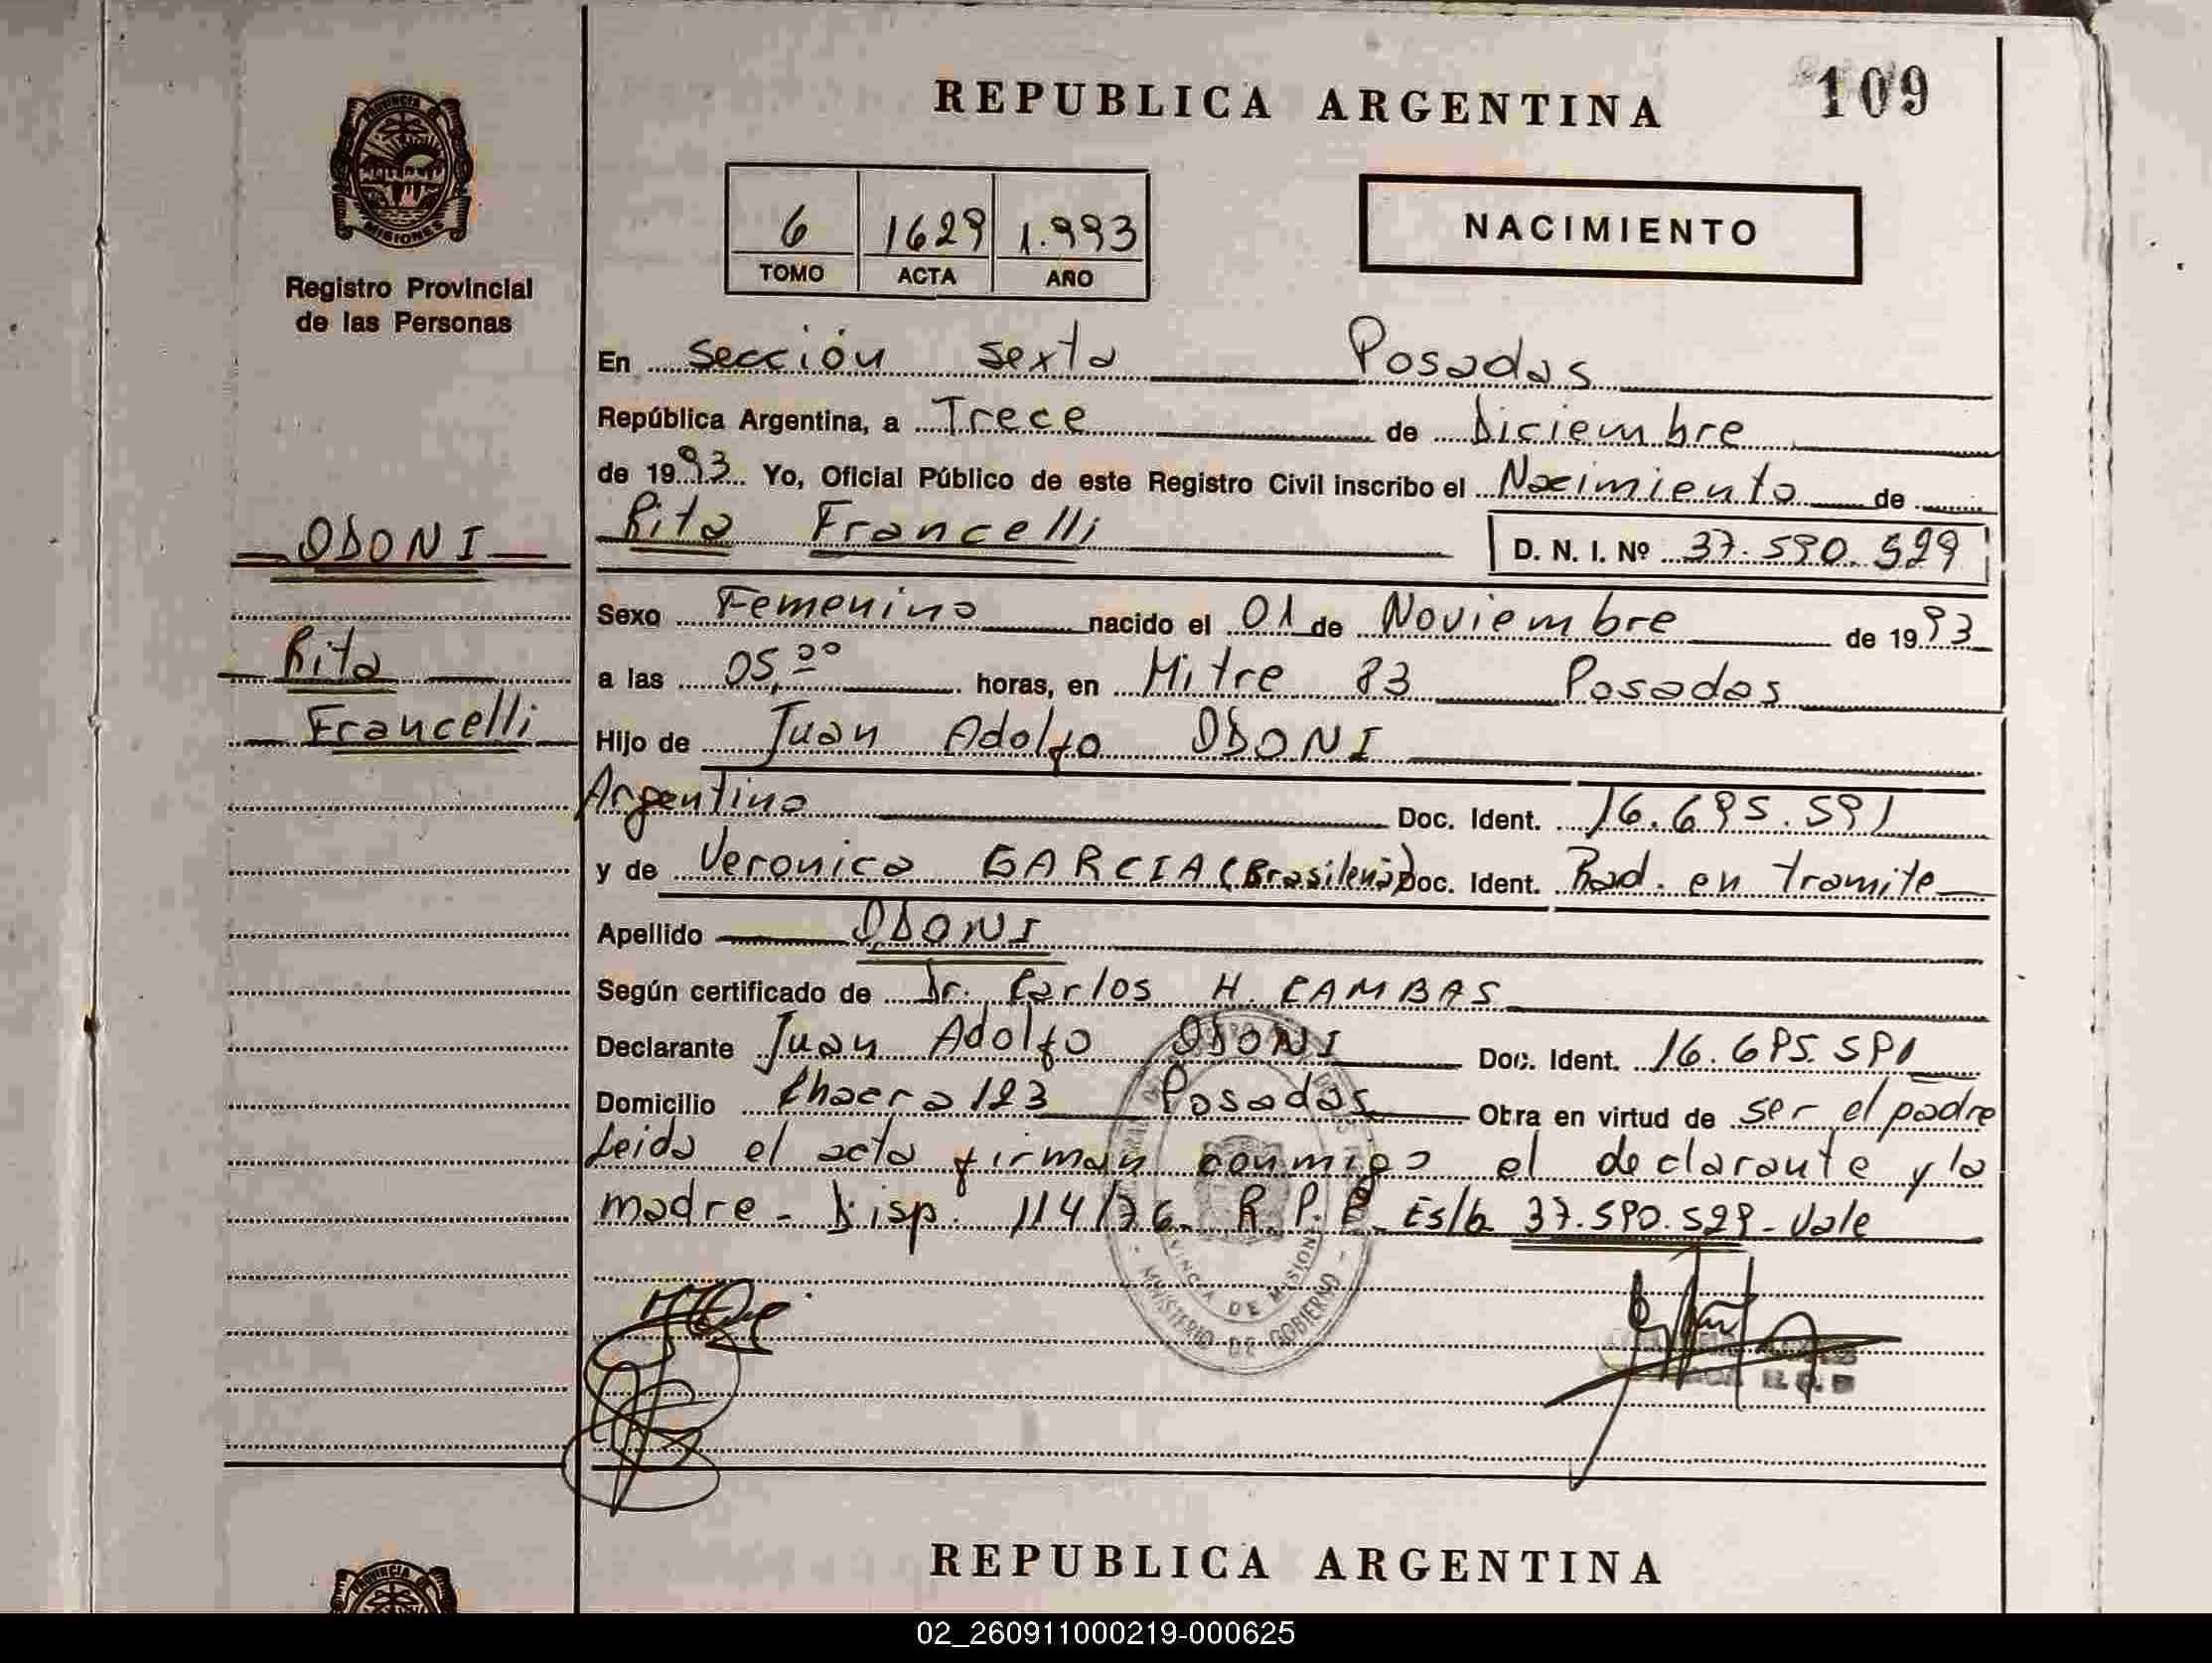 REPUBLICA ARGENTINA
109
PROVINCIA
MISIONES
Registro Provincial
de las Personas
6 1629 1.993
TOMO ACTA AÑO
NACIMIENTO
En Sección Sexta Posadas
República Argentina, a Trece de Diciembre
de 1993 Yo, Oficial Público de este Registro Civil inscribo el Nacimiento de
Rita Francelli D. N. I. Nº 37.590.529
ODONI
Rita
Francelli
Sexo Femenino nacido el 01 de Noviembre de 1993
a las 05,00 horas, en Mitre 83 Posadas
Hijo de Juan Adolfo ODONI
Argentino Doc. Ident. 16.695.591
y de Veronica GARCIA (Brasileña) Doc. Ident. Rad. en tramite
Apellido ODONI
Según certificado de Dr. Carlos H. CAMBAS
Declarante Juan Adolfo ODONI Doc. Ident. 16.695.591
Domicilio Chacra 123 Posadas Obra en virtud de ser el padre
Leida el acta firman conmigo el declarante y la
madre - Disp. 114/76 R.P.P. Es/b 37.590.529 - Vale
PROVINCIA DE MISIONES
MINISTERIO DE GOBIERNO
REPUBLICA ARGENTINA
PROVINCIA
02_260911000219-000625